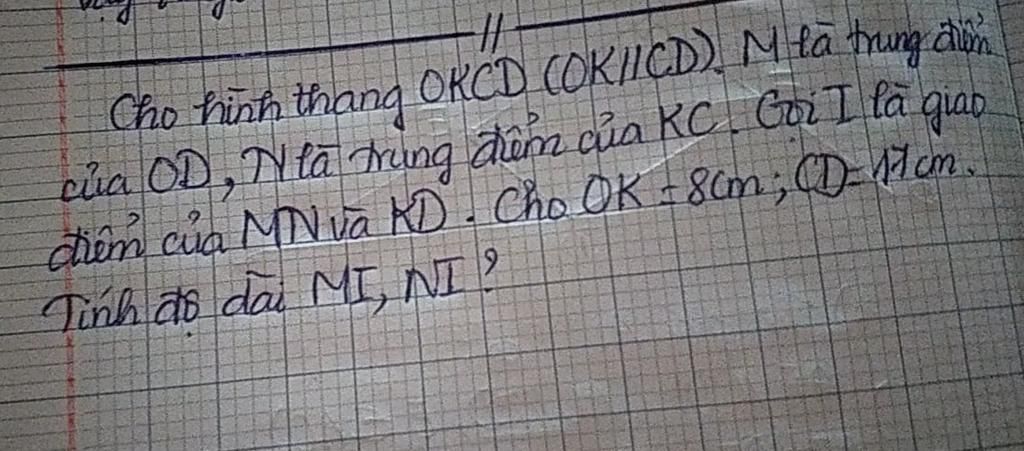 Cho hình thang OKCD (OK//CD). M là trung điểm
của OD, N là trung điểm của KC. Gọi I là giao
điểm của MN và KD. Cho OK = 8cm; CD = 17cm.
Tính độ dài MI, NI?